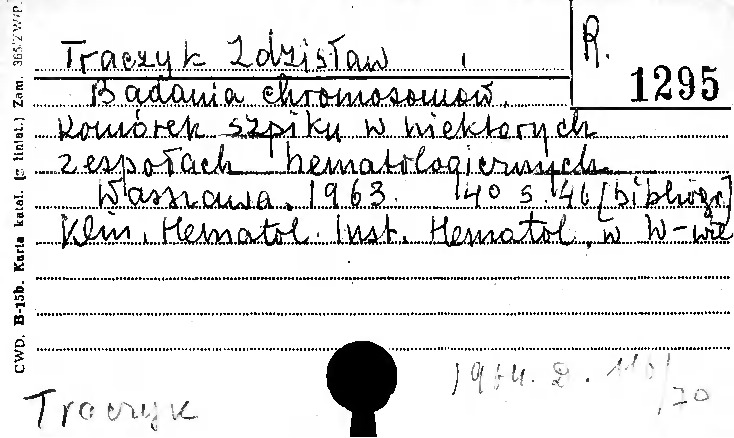 R.
1295
Traczyk Zdzisław
Badania chromosomów
komórek szpiku w niektórych
zespołach hematologicznych
Warszawa. 1963. 140 s. 46 [bibliogr]
Klin. Hematol. Inst. Hematol. w W-wie
1964. D. 110/70
Traczyk
CWD. B-15b. Karta katal. (z liniat.) Zam. 365/ZW/P.